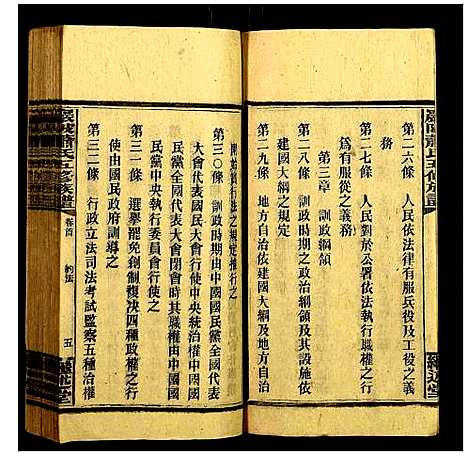 第二六條　人民依法律有服兵役及工役之義
務
第二七條　人民對於公署依法執行職權之行
為有服從之義務
第三章　訓政綱領
第二八條　訓政時期之政治綱領及其設施依
建國大綱之規定
第二九條　地方自治依建國大綱及地方自治
開始實行法之規定推行之
第三〇條　訓政時期由中國國民黨全國代表
大會代表國民大會行使中央統治權中國國
民黨全國代表大會閉會時其職權由中國國
民黨中央執行委員會行使之
第三一條　選舉罷免創制複決四種政權之行
使由國民政府訓導之
第三二條　行政立法司法考試監察五種治權
蕭氏五修族譜
卷首
約法
五